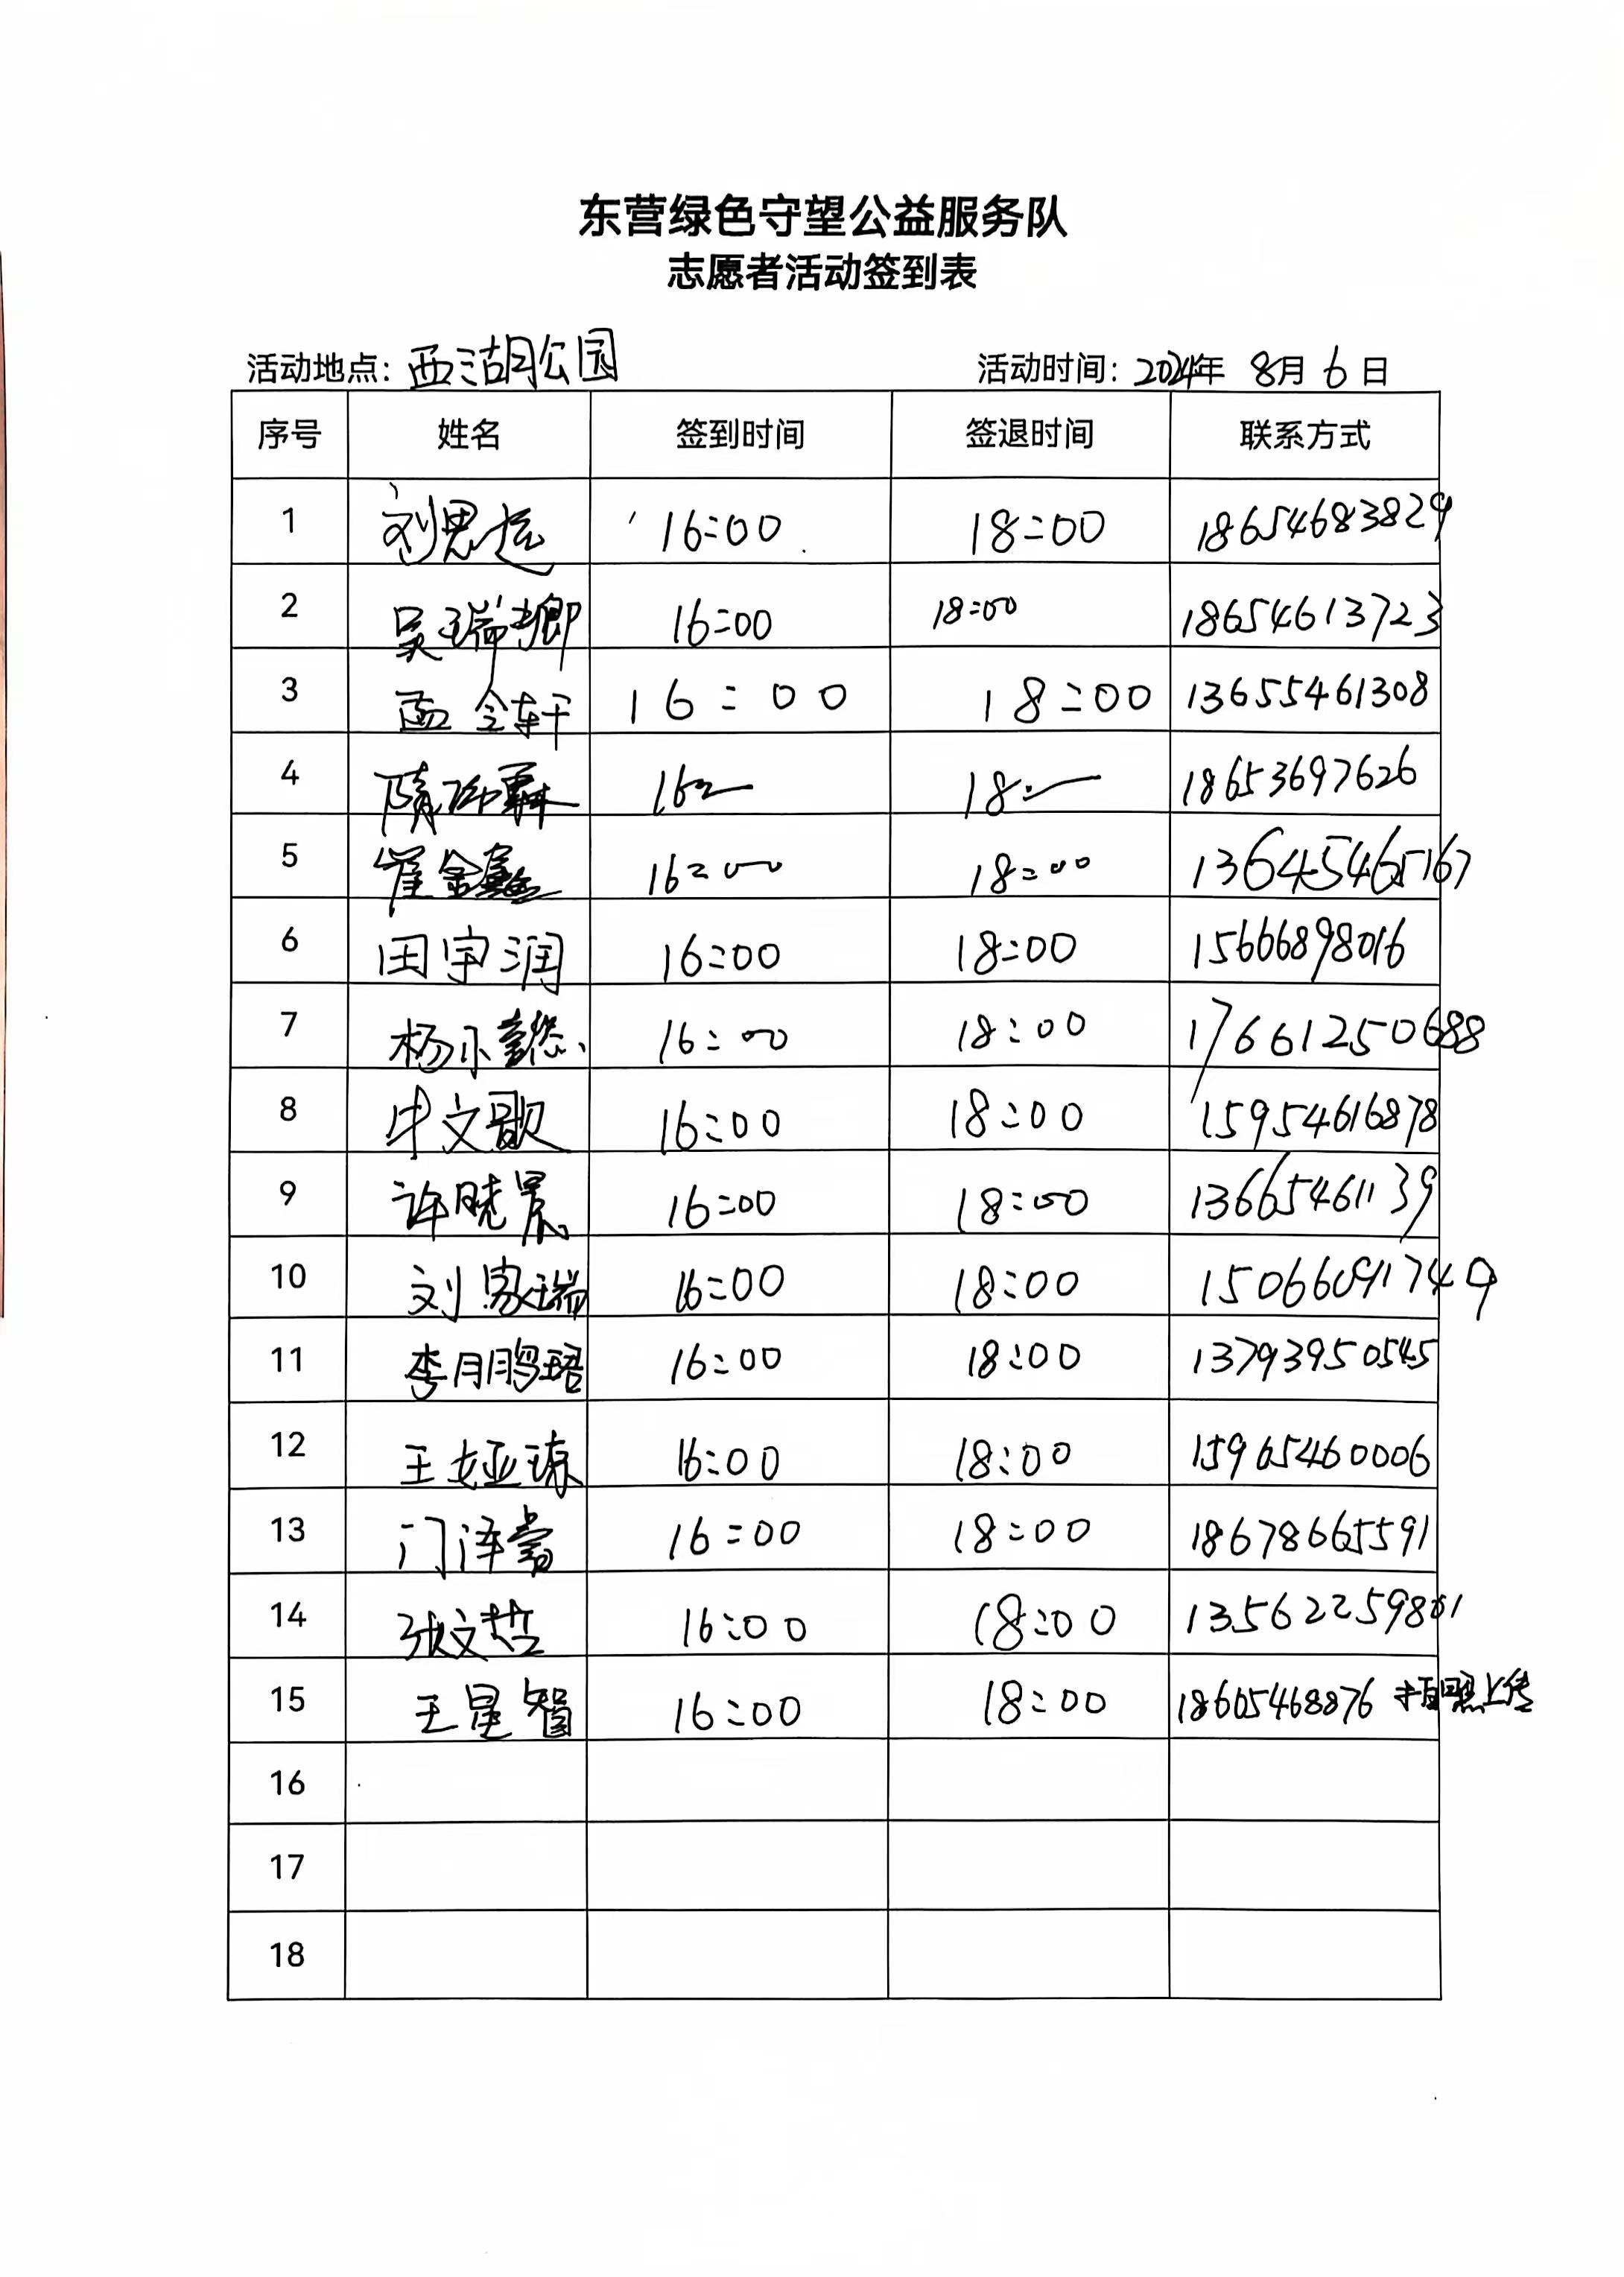 东营绿色守望公益服务队
志愿者活动签到表
活动地点：西湖公园 活动时间：2024年 8月 6日
序号 姓名 签到时间 签退时间 联系方式
1 刘思远 16:00 18:00 18654683829
2 吴瑞卿 16:00 18:00 18654613723
3 孟令轩 16:00 18:00 13655461308
4 隋 16: 18: 18653697626
5 崔金鑫 16:00 18:00 13645465167
6 田宇润 16:00 18:00 15666898016
7 杨小懿 16:00 18:00 17661250688
8 牛文歌 16:00 18:00 15954616878
9 许晓晨 16:00 18:00 13665461139
10 刘家瑞 16:00 18:00 15066091749
11 李鹏珺 16:00 18:00 13793950545
12 王娅琼 16:00 18:00 15965460006
13 门泽嵩 16:00 18:00 18678665591
14 张文哲 16:00 18:00 13562259801
15 王星智 16:00 18:00 18605468876 拍照上传
16
17
18